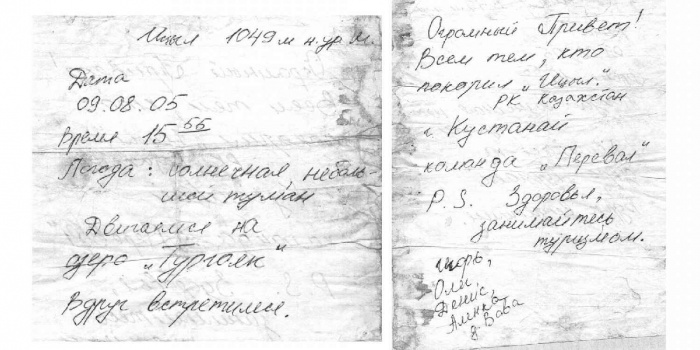 Ицыл 1049 м н.ур.м.
Дата
09.08.05
Время 15 55
Погода: солнечная, неболь-
шой туман
Двигаемся на
озеро „Тургояк"
Вдруг встретимся.
Огромный Привет!
Всем тем, кто
покорил „Ицыл".
РК Казахстан
г. Кустанай
команда „Перевал"
P.S. Здоровья,
занимайтесь
туризмом.
Игорь,
Оля,
Денис,
Аленка,
д. Вова